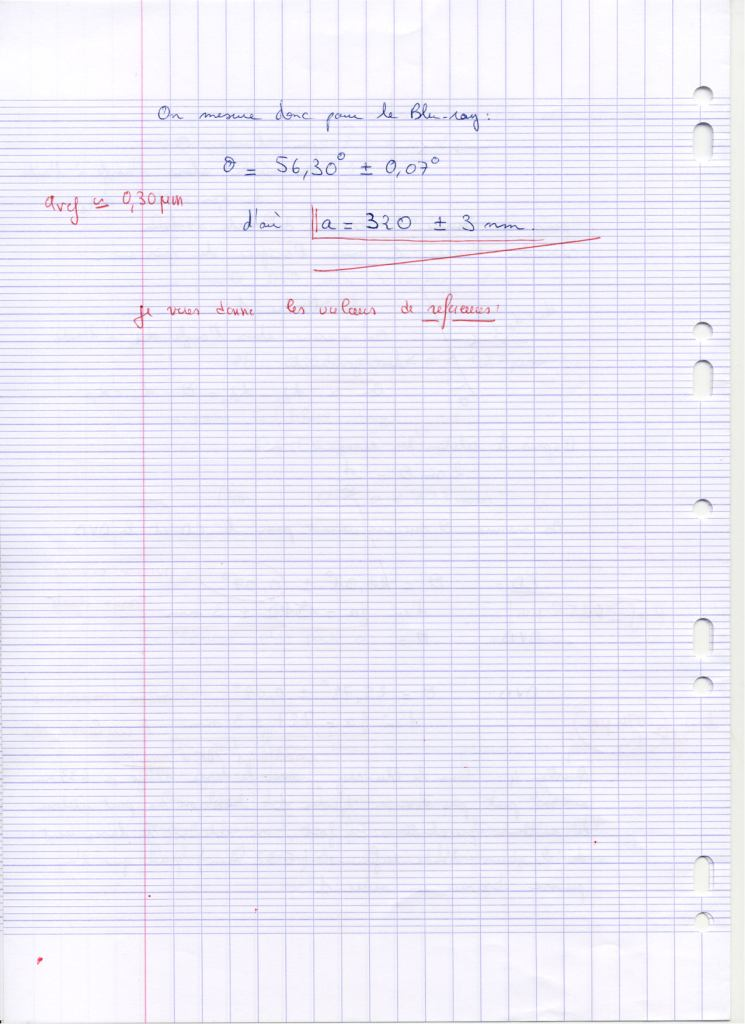 On mesure donc pour le Blu-ray:
θ = 56,30° ± 0,07°
aref ≃ 0,30 μm
d'où a = 320 ± 3 nm.
je vous donne les valeurs de références!